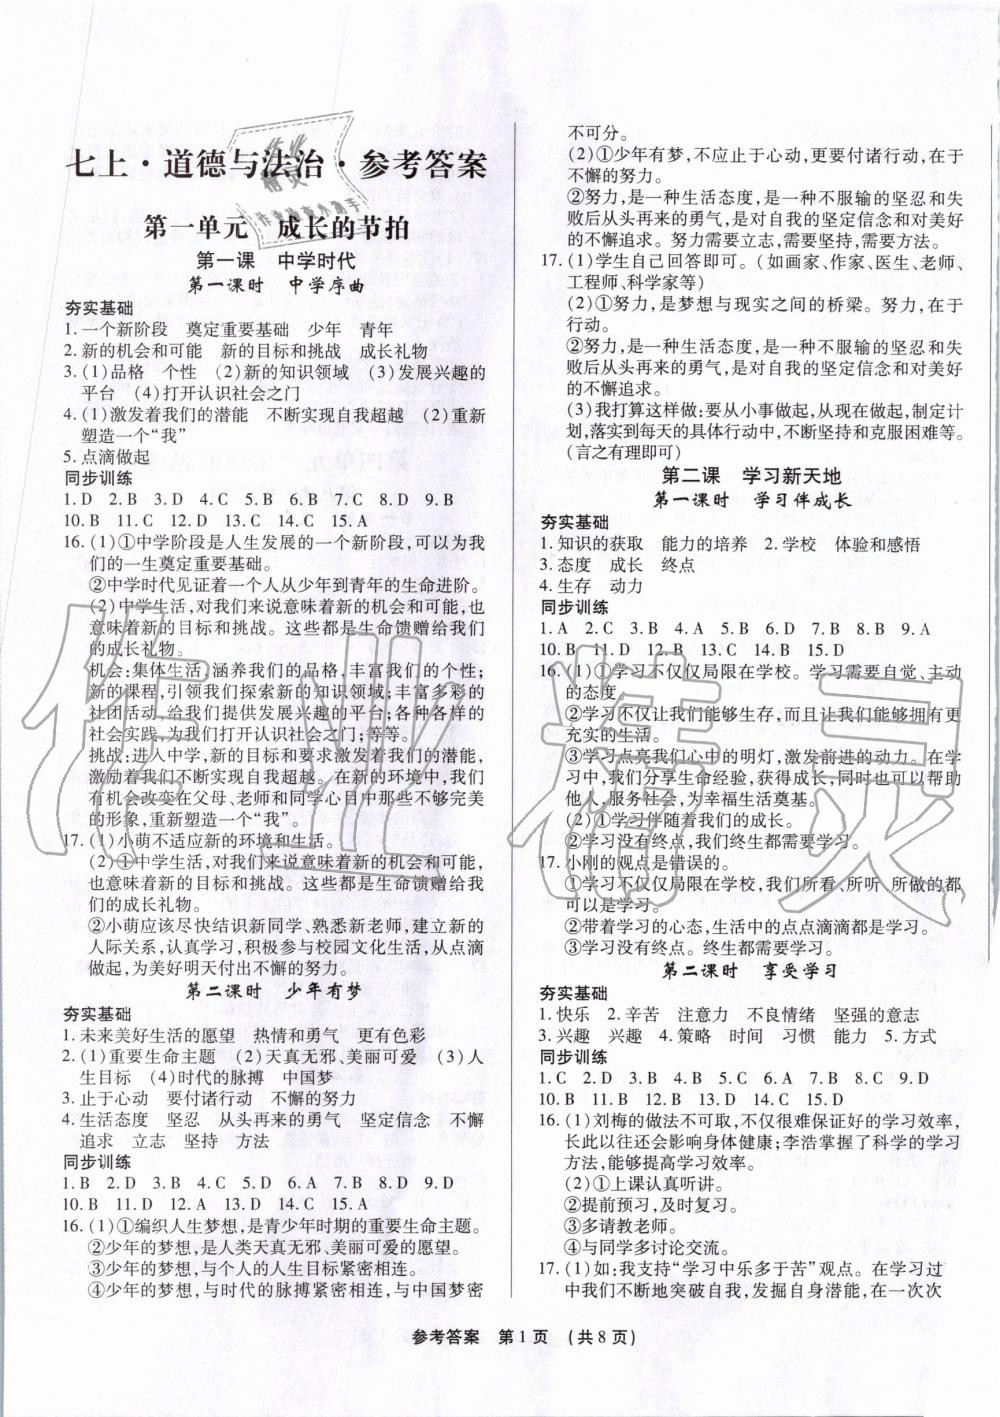 七上·道德与法治·参考答案
第一单元 成长的节拍
第一课 中学时代
第一课时 中学序曲
夯实基础
1.一个新阶段 奠定重要基础 少年 青年
2.新的机会和可能 新的目标和挑战 成长礼物
3.(1)品格 个性 (2)新的知识领域 (3)发展兴趣的
平台 (4)打开认识社会之门
4.(1)激发着我们的潜能 不断实现自我超越 (2)重新
塑造一个“我”
5.点滴做起
同步训练
1.D 2.B 3.D 4.C 5.B 6.B 7.C 8.D 9.B
10.B 11.C 12.D 13.C 14.C 15.A
16.(1)①中学阶段是人生发展的一个新阶段,可以为我
们的一生奠定重要基础。
②中学时代见证着一个人从少年到青年的生命进阶。
(2)中学生活,对我们来说意味着新的机会和可能,也
意味着新的目标和挑战。这些都是生命馈赠给我们
的成长礼物。
机会:集体生活,涵养我们的品格,丰富我们的个性;
新的课程,引领我们探索新的知识领域;丰富多彩的
社团活动,给我们提供发展兴趣的平台;各种各样的
社会实践,为我们打开认识社会之门;等等。
挑战:进入中学,新的目标和要求激发着我们的潜能,
激励着我们不断实现自我超越。在新的环境中,我们
有机会改变在父母、老师和同学心目中那些不够完美
的形象,重新塑造一个“我”。
17.(1)小萌不适应新的环境和生活。
(2)①中学生活,对我们来说意味着新的机会和可能,
也意味着新的目标和挑战。这些都是生命馈赠给我
们的成长礼物。
②小萌应该尽快结识新同学、熟悉新老师,建立新的
人际关系,认真学习,积极参与校园文化生活,从点滴
做起,为美好明天付出不懈的努力。
第二课时 少年有梦
夯实基础
1.未来美好生活的愿望 热情和勇气 更有色彩
2.(1)重要生命主题 (2)天真无邪、美丽可爱 (3)人
生目标 (4)时代的脉搏 中国梦
3.止于心动 要付诸行动 不懈的努力
4.生活态度 坚忍 从头再来的勇气 坚定信念 不懈
追求 立志 坚持 方法
同步训练
1.B 2.D 3.B 4.D 5.A 6.C 7.D 8.C 9.D
10.B 11.D 12.A 13.D 14.C 15.A
16.(1)①编织人生梦想,是青少年时期的重要生命主题。
②少年的梦想,是人类天真无邪、美丽可爱的愿望。
③少年的梦想,与个人的人生目标紧密相连。
④少年的梦想,与时代的脉搏紧密相连,与中国梦密
不可分。
(2)①少年有梦,不应止于心动,更要付诸行动,在于
不懈的努力。
②努力,是一种生活态度,是一种不服输的坚忍和失
败后从头再来的勇气,是对自我的坚定信念和对美好
的不懈追求。努力需要立志,需要坚持,需要方法。
17.(1)学生自己回答即可。(如画家、作家、医生、老师、
工程师、科学家等)
(2)①努力,是梦想与现实之间的桥梁。努力,在于
行动。
②努力,是一种生活态度,是一种不服输的坚忍和失
败后从头再来的勇气,是对自我的坚定信念和对美好
的不懈追求。
(3)我打算这样做:要从小事做起,从现在做起,制定计
划,落实到每天的具体行动中,不断坚持和克服困难等。
(言之有理即可)
第二课 学习新天地
第一课时 学习伴成长
夯实基础
1.知识的获取 能力的培养 2.学校 体验和感悟
3.态度 成长 终点
4.生存 动力
同步训练
1.A 2.C 3.B 4.A 5.B 6.D 7.B 8.B 9.A
10.B 11.D 12.D 13.B 14.C 15.D
16.(1)①学习不仅仅局限在学校。学习需要自觉、主动
的态度。
②学习不仅让我们能够生存,而且让我们能够拥有更
充实的生活。
③学习点亮我们心中的明灯,激发前进的动力。在学
习中,我们分享生命经验,获得成长,同时也可以帮助
他人,服务社会,为幸福生活奠基。
(2)①学习伴随着我们的成长。
②学习没有终点,我们终生都需要学习。
17.小刚的观点是错误的。
①学习不仅仅局限在学校,我们所看、所听、所做的都
可以是学习。
②带着学习的心态,生活中的点点滴滴都是学习。
③学习没有终点。终生都需要学习。
第二课时 享受学习
夯实基础
1.快乐 2.辛苦 注意力 不良情绪 坚强的意志
3.兴趣 兴趣 4.策略 时间 习惯 能力 5.方式
同步训练
1.C 2.D 3.B 4.D 5.C 6.A 7.B 8.C 9.D
10.B 11.D 12.B 13.A 14.C 15.D
16.(1)刘梅的做法不可取,不仅很难保证好的学习效率,
长此以往还会影响身体健康;李浩掌握了科学的学习
方法,能够提高学习效率。
(2)①上课认真听讲。
②提前预习,及时复习。
③多请教老师。
④与同学多讨论交流。
17.(1)如:我支持“学习中乐多于苦”观点。在学习过
中我们不断地突破自我,发掘自身潜能,在一次次
参考答案 第1页 (共8页)
作业精灵